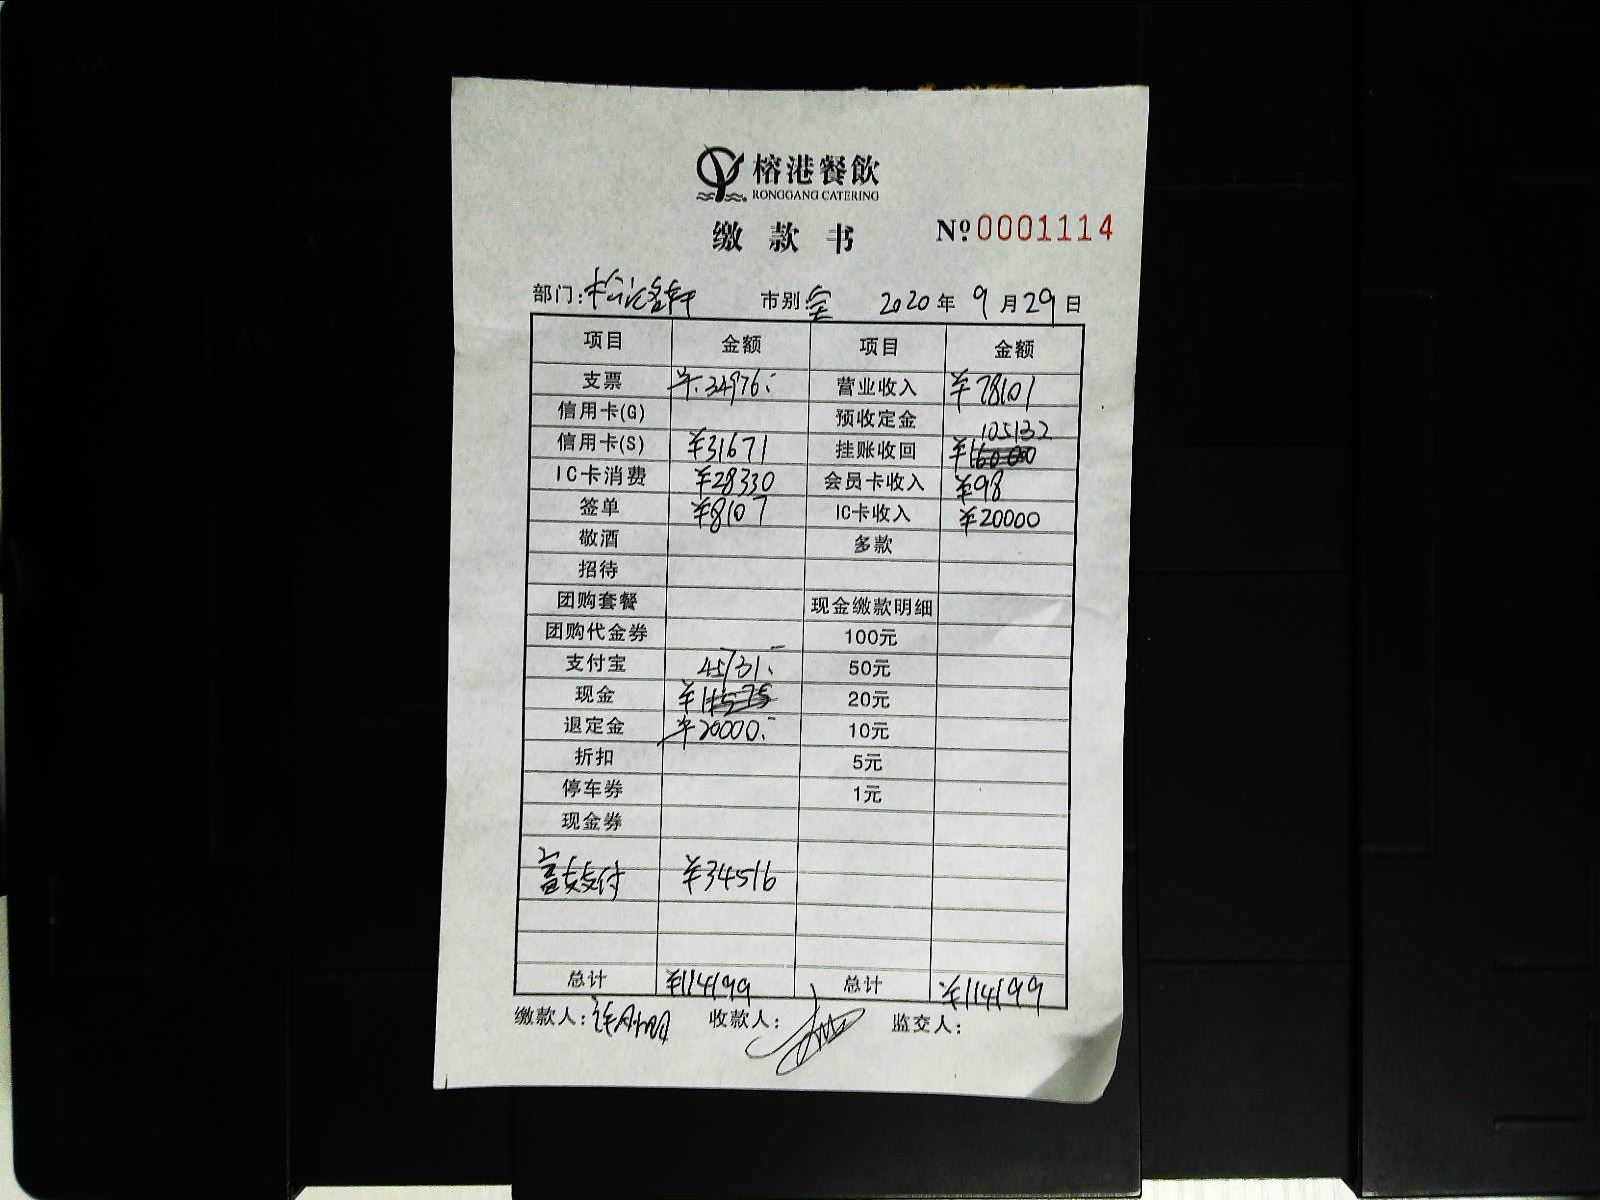 榕港餐飲
RONGGANG CATERING
缴款书 Nº:0001114
部门: 市别: 全 2020年9月29日
项目 金额 项目 金额
支票 ¥34976.- 营业收入 ¥78101
信用卡(G) 预收定金
105132
信用卡(S) ¥31671 挂账收回 ¥16000
IC卡消费 ¥28330 会员卡收入 ¥98
签单 ¥8107 IC卡收入 ¥20000
敬酒 多款
招待
团购套餐 现金缴款明细
团购代金券 100元
支付宝 45731.- 50元
现金 20元
退定金 ¥20000.- 10元
折扣 5元
停车券 1元
现金券
富友支付 ¥34516
总计 ¥114199 总计 ¥114199
缴款人: 收款人: 监交人: